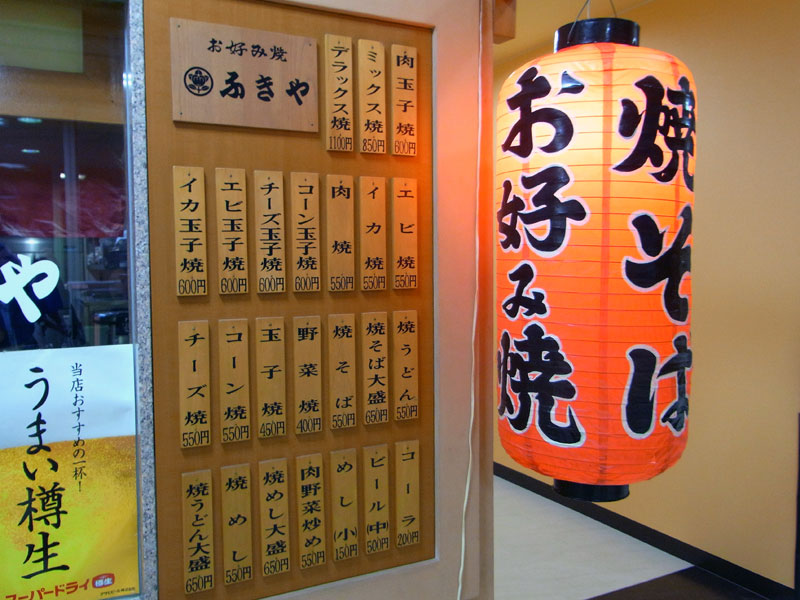 お好み焼
ふきや
肉玉子焼
600円
ミックス焼
850円
デラックス焼
1100円
エビ焼
550円
イカ焼
550円
肉焼
550円
コーン玉子焼
600円
チーズ玉子焼
600円
エビ玉子焼
600円
イカ玉子焼
600円
焼うどん
550円
焼そば大盛
650円
焼そば
550円
野菜焼
400円
玉子焼
450円
コーン焼
550円
チーズ焼
550円
コーラ
200円
ビール(中)
500円
めし(小)
150円
肉野菜炒め
550円
焼めし大盛
650円
焼めし
550円
焼うどん大盛
650円
お好み焼
焼そば
や
当店おすすめの一杯!
うまい樽生
スーパードライ
樽生